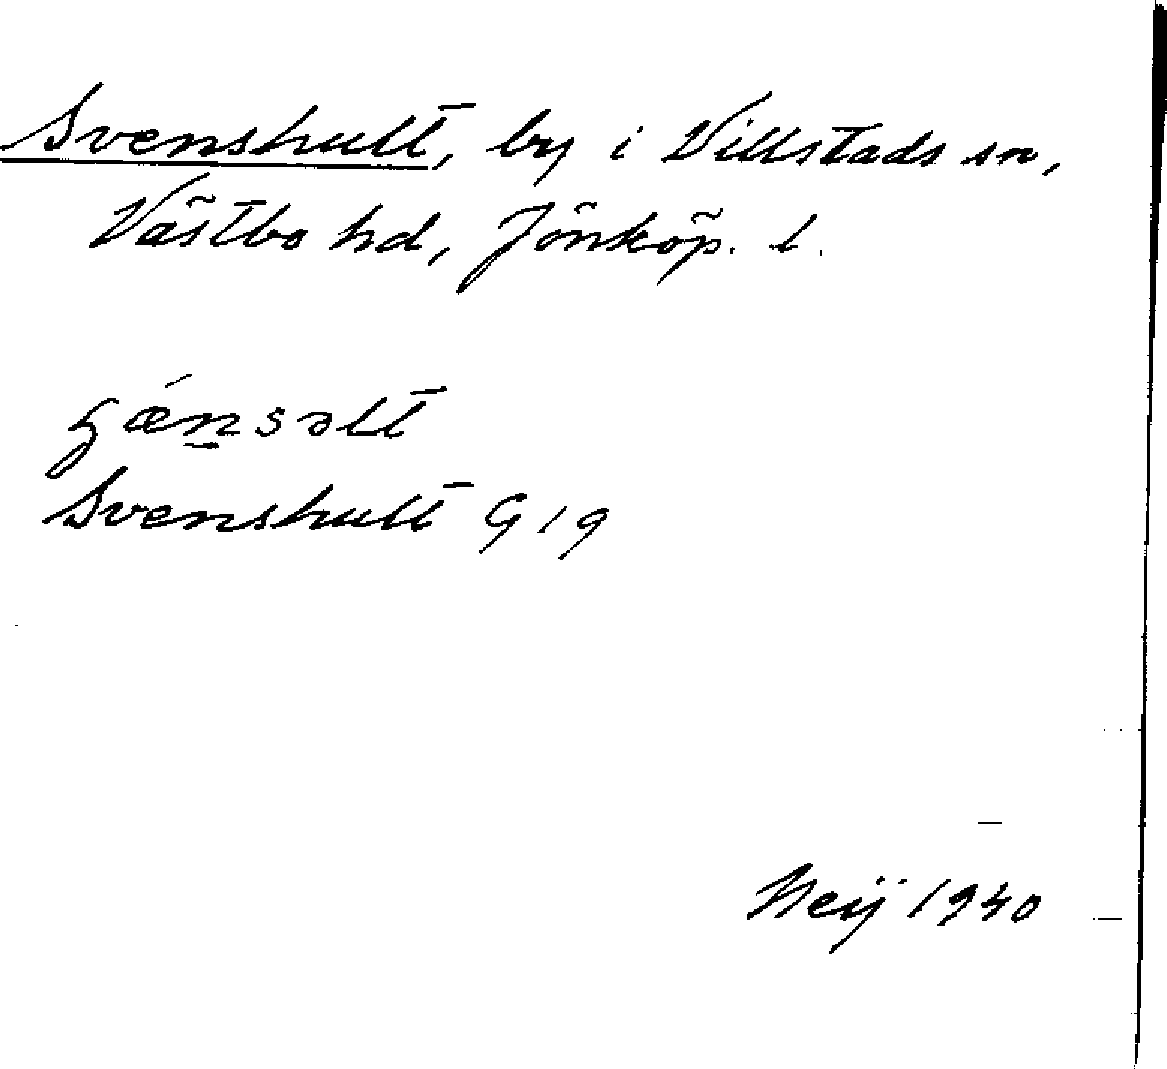 Svenshult, by i Villstads sn,
Västbo hd, Jönköp. l.
Svenshult G 19
Heij 1940